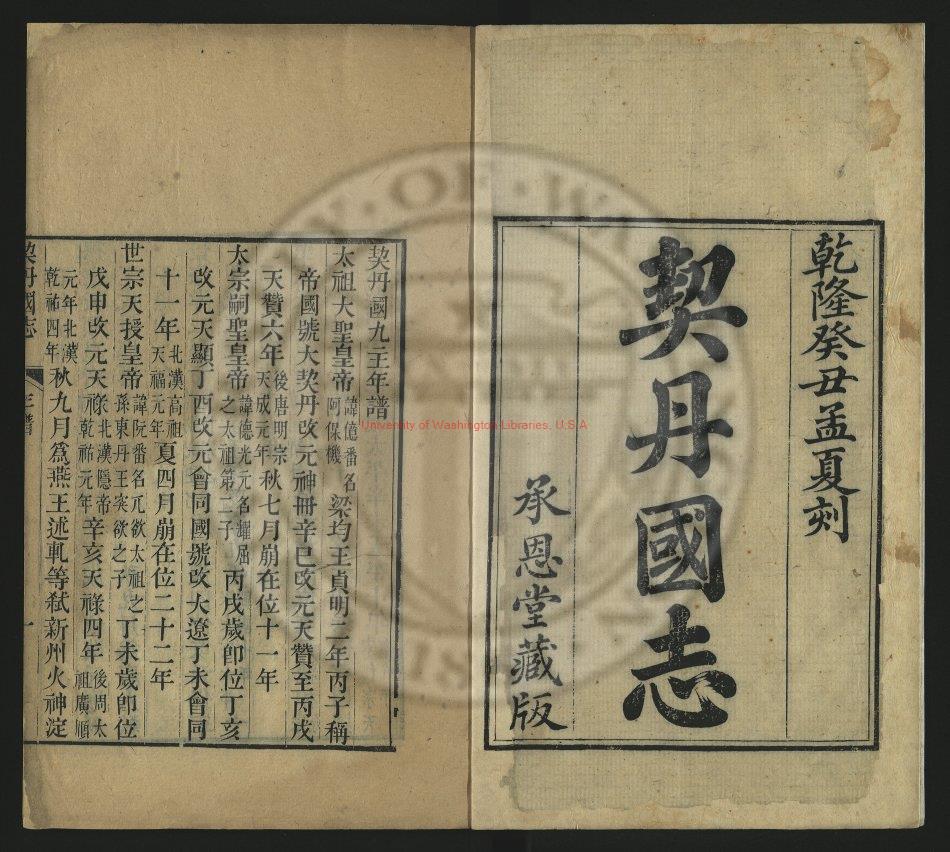 乾隆癸丑孟夏刻
契丹國志
承恩堂藏版
契丹國九主年譜
太祖大聖皇帝諱億番名阿保機梁均王貞明二年丙子稱
帝國號大契丹改元神冊辛巳改元天贊至丙戌
天贊六年後唐明宗天成元年秋七月崩在位十一年
太宗嗣聖皇帝諱德光元名耀屈之太祖第二子丙戌歲卽位丁亥
改元天顯丁酉改元會同國號改大遼丁未會同
十一年北漢高祖天福元年夏四月崩在位二十二年
世宗天授皇帝諱阮番名兀欲太祖之孫東丹王突欲之子丁未歲卽位
戊申改元天祿北漢隱帝乾祐元年辛亥天祿四年後周太祖廣順
元年北漢乾祐四年秋九月爲燕王述軋等弒新州火神淀
契丹國志
年譜
一
University of Washington Libraries, U.S.A